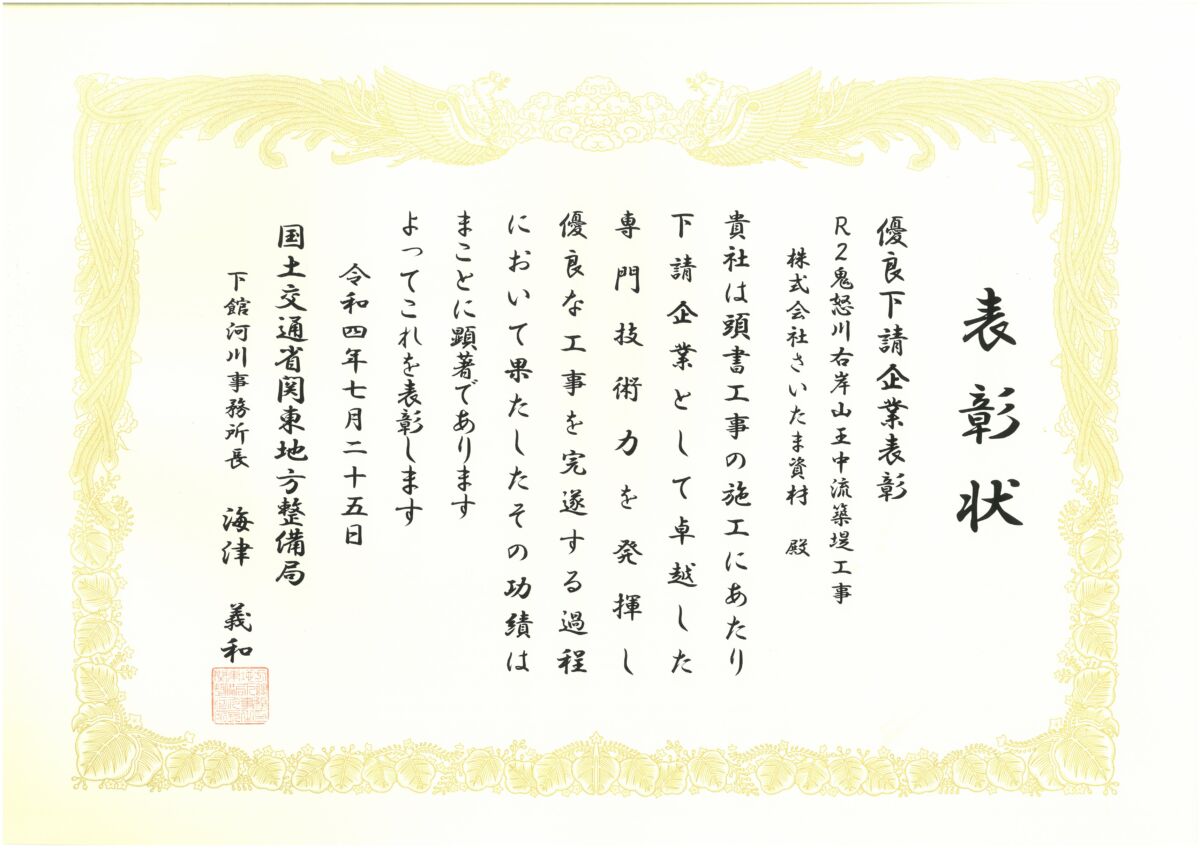 表彰状
優良下請企業表彰
R2鬼怒川右岸山王中流築堤工事
株式会社さいたま資材 殿
貴社は頭書工事の施工にあたり
下請企業として卓越した
専門技術力を発揮し
優良な工事を完遂する過程
において果たしたその功績は
まことに顕著であります
よってこれを表彰します
令和四年七月二十五日
国土交通省関東地方整備局
下館河川事務所長 海津 義和